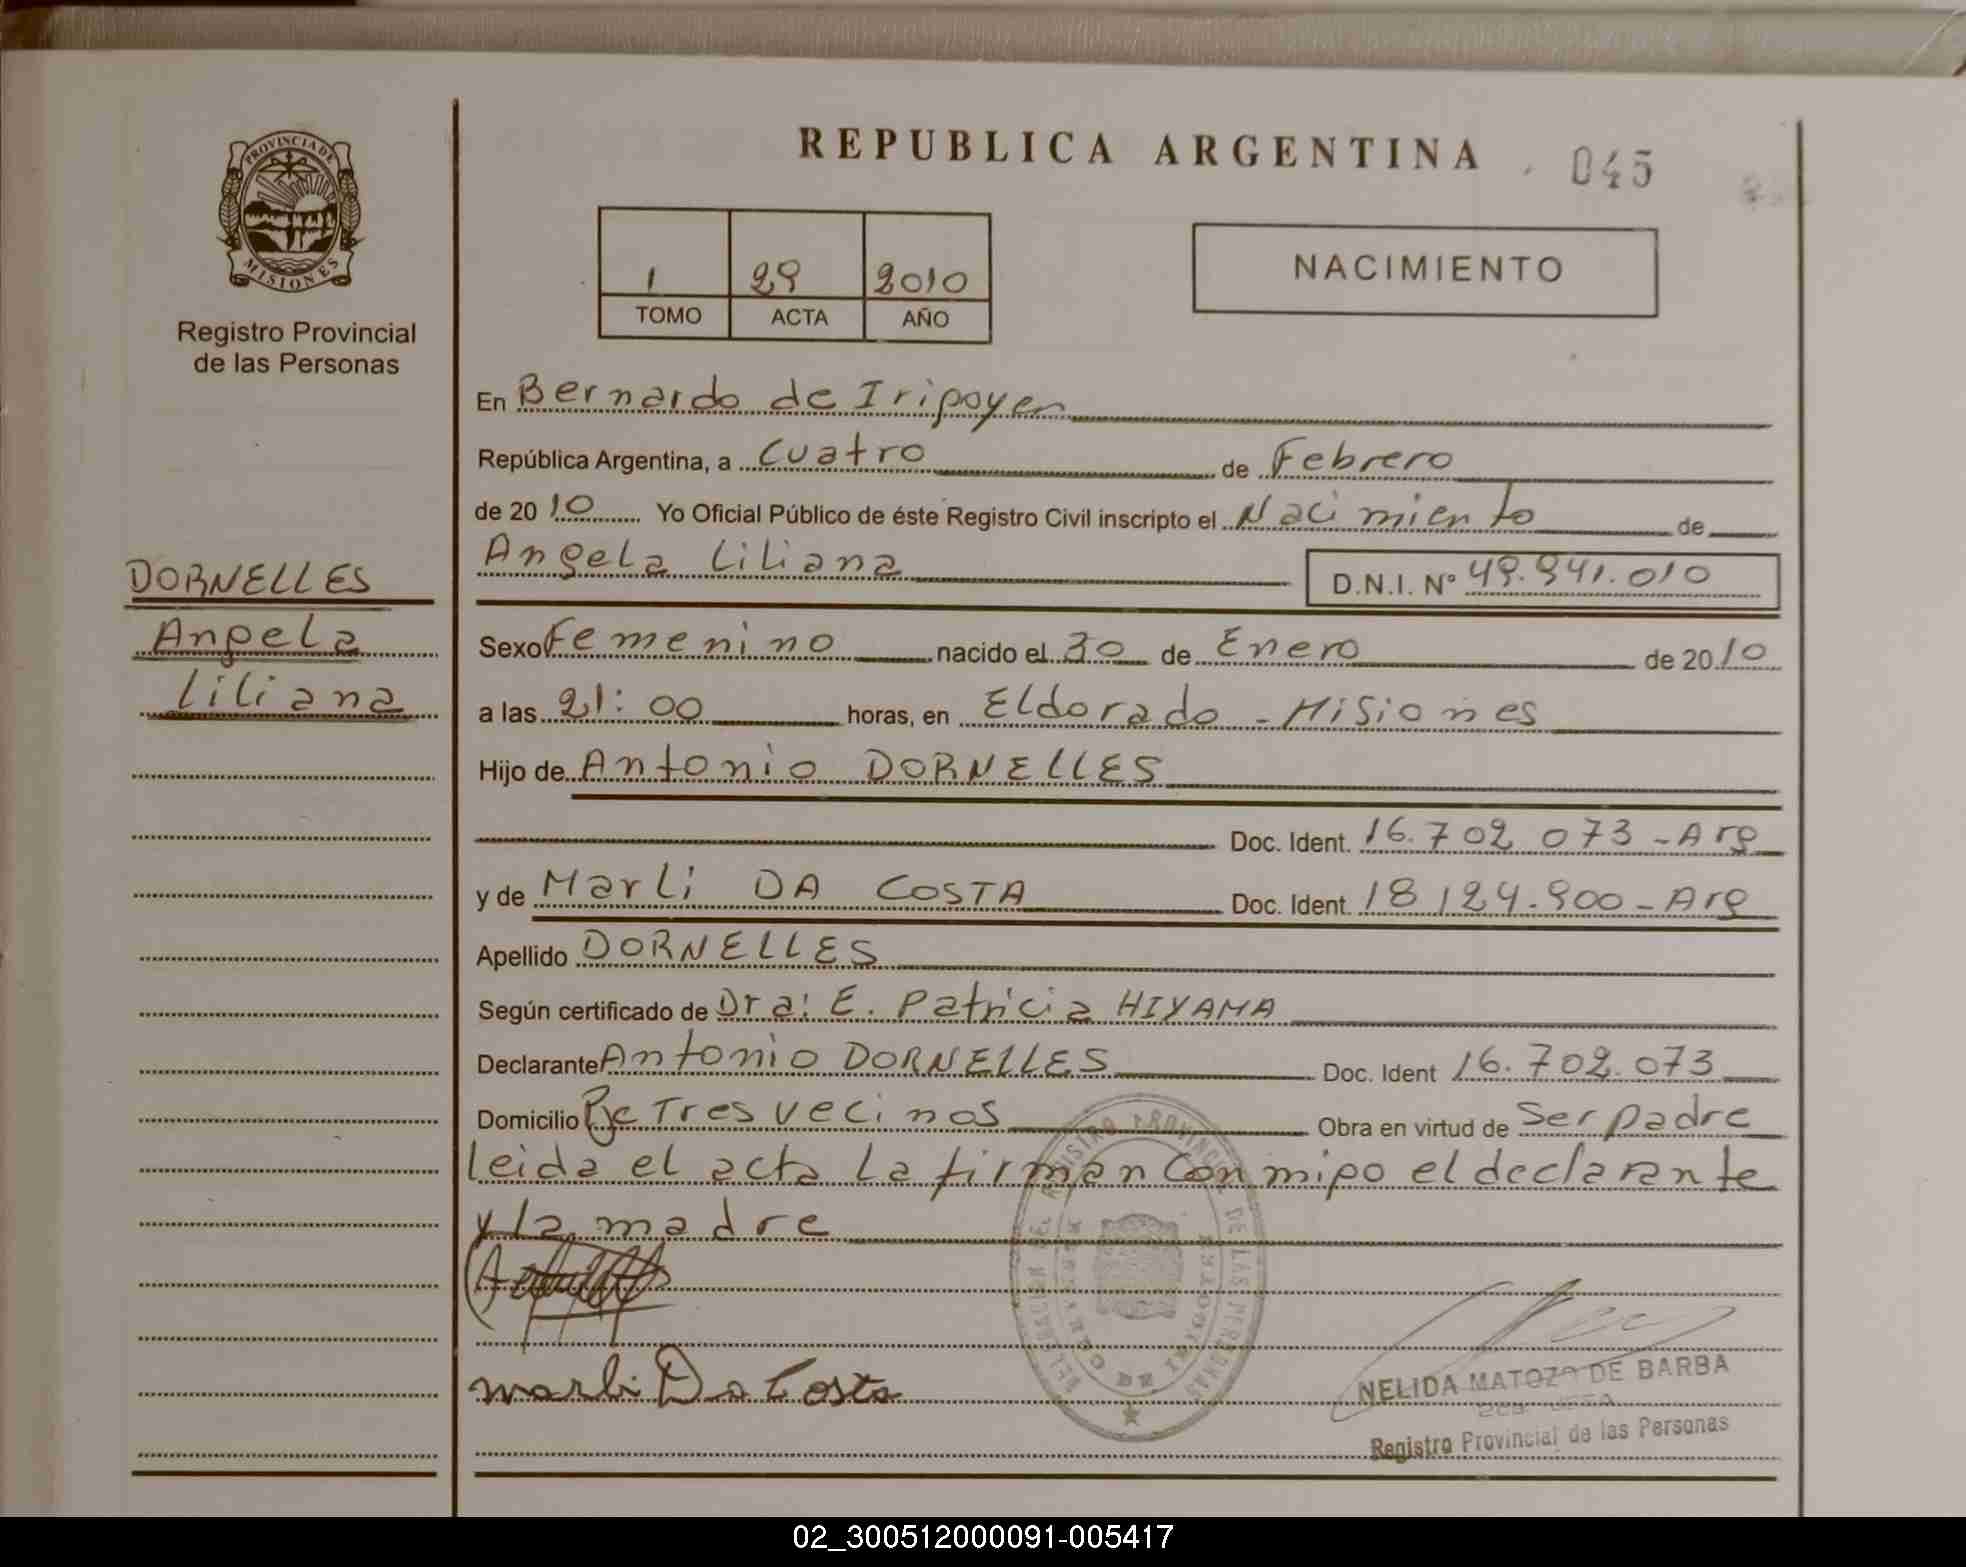 REPUBLICA ARGENTINA
045
PROVINCIA DE
MISIONES
Registro Provincial
de las Personas
1 29 2010
TOMO ACTA AÑO
NACIMIENTO
En Bernardo de Irigoyen
República Argentina, a Cuatro de Febrero
de 20 10 Yo Oficial Público de éste Registro Civil inscripto el Nacimiento de
Angela Liliana D.N.I. Nº 49.941.010
DORNELLES
Angela
Liliana
Sexo Femenino nacido el 30 de Enero de 20 10
a las 21:00 horas, en Eldorado - Misiones
Hijo de Antonio DORNELLES
Doc. Ident. 16.702 073 - Arg
y de Marli DA COSTA Doc. Ident. 18 124.900 - Arg
Apellido DORNELLES
Según certificado de Dra: E. Patricia HIYAMA
Declarante Antonio DORNELLES Doc. Ident 16.702.073
Domicilio Pje Tres vecinos Obra en virtud de Ser padre
leida el acta la firman Con migo el declarante
y la madre
marli Da Costa
NELIDA MATOZO DE BARBA
Registro Provincial de las Personas
02_300512000091-005417